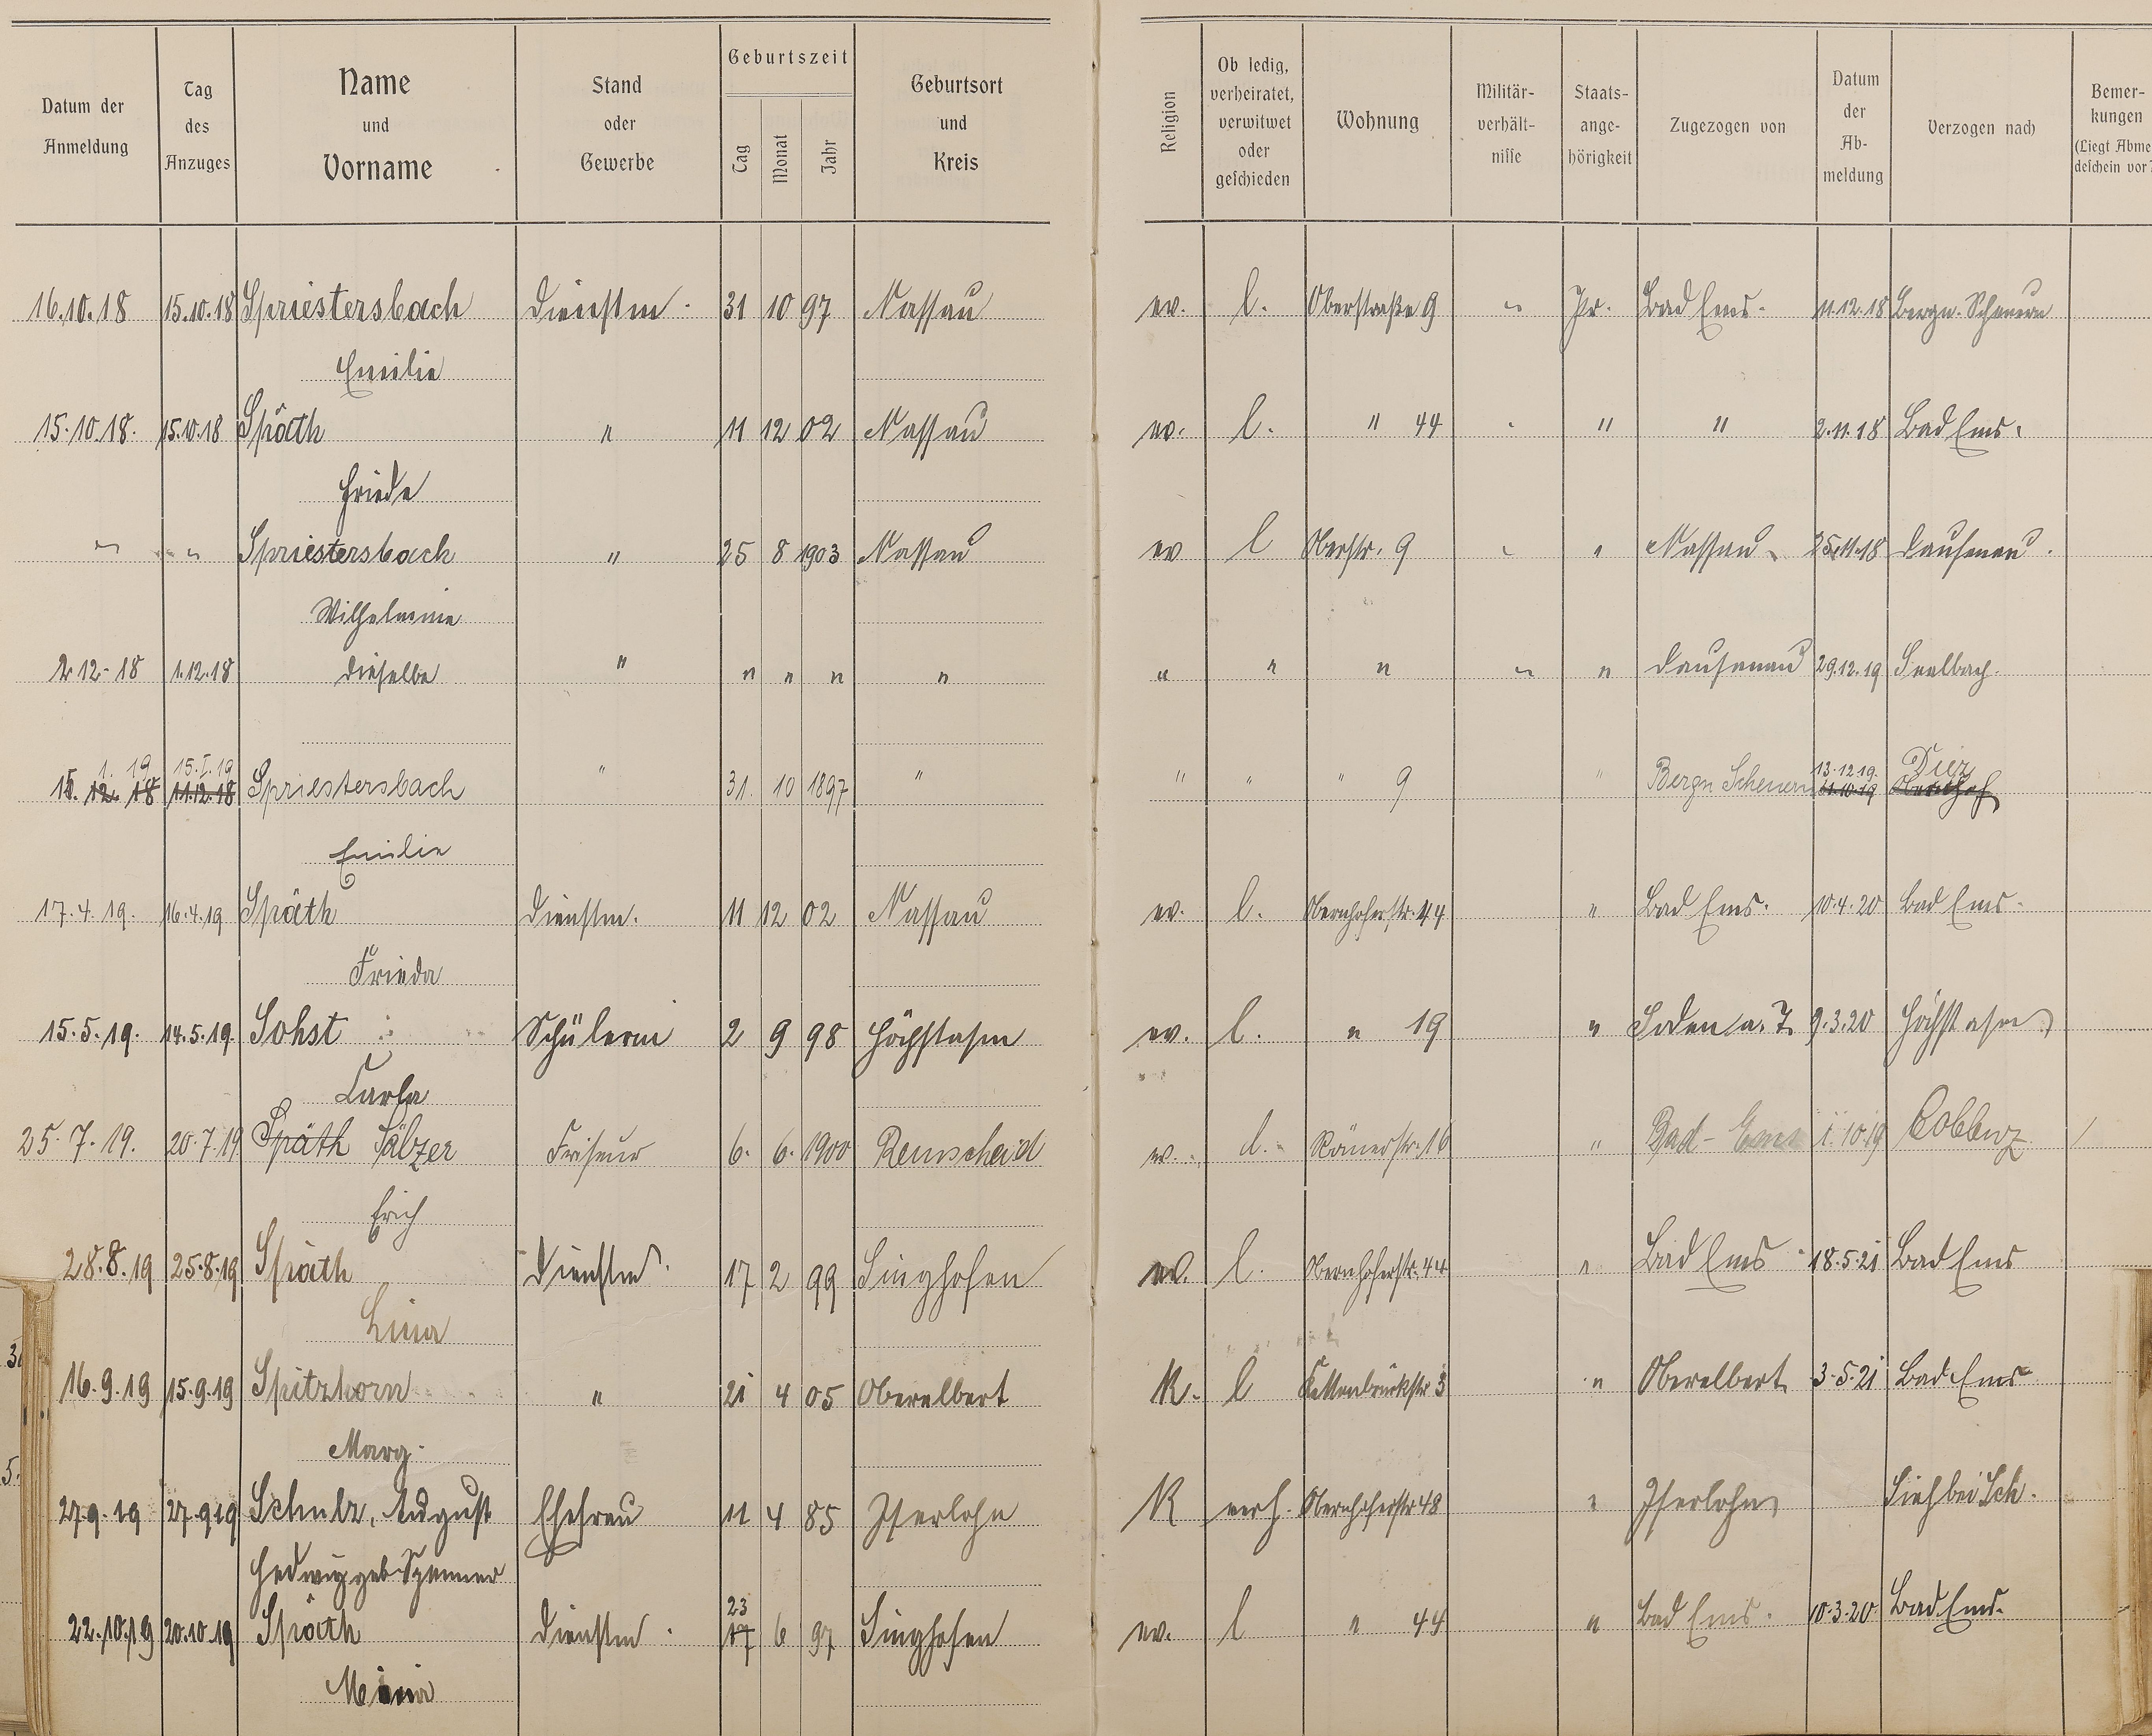 Datum der Anmeldung | Tag des Anzuges | Name und Vorname | Stand oder Gewerbe | Geburtszeit Tag Monat Jahr | Geburtsort und Kreis | Religion | Ob ledig, verheiratet, verwitwet oder geschieden | Wohnung | Militär-verhält-nisse | Staats-ange-hörigkeit | Zugezogen von | Datum der Ab-meldung | Verzogen nach | Bemer-kungen (Liegt Abme deschein vor?
16.10.18 15.10.18 Spriestersbach Dienstm. 31 10 97 Nassau ev. l. Oberstraße 9 " Pr. Bad Ems. 11.12.18 Bergn. Scheuern
Emilie
15.10.18. 15.10.18 Späth " 11 12 02 Nassau ev. l. " 44 " " 2.11.18 Bad Ems.
Friede
" " Spriestersbach " 25 8 1903 Nassau ev l Oberstr. 9 " " Nassau 25.11.18 Dausenau.
Wilhelmine
2.12-18 1.12.18 Dieselbe " " " " " " " " " " Dausenau 29.12.19 Seelbach.
1. 19 15.I.19 13.12.19. Diez
15. 12. 18 11.12.18 Spriestersbach " 31. 10 1897 " " " " 9 " Bergn Scheuern 31.10.19 Obernhof
Emilie
17.4.19. 16.4.19 Späth Dienstm. 11 12 02 Nassau ev. l. Obernhoferstr. 44 " Bad Ems. 10.4.20 Bad Ems.
Frieda
15.5.19. 14.5.19. Sohst Schülerin 2 9 98 Höchst a/m ev. l. " 19 " Soden a. T. 9.3.20 Höchst a/m
Carla
25.7.19. 20.7.19 Späth Sälzer Friseur 6. 6. 1900 Remscheid ev. l. Römerstr. 16 " Bad-Ems 1.10.19 Coblenz /
Erich
28.8.19 25.8.19 Späth Dienstm. 17 2 99 Singhofen ev. l. Obernhoferstr. 44 " Bad Ems 18.5.21 Bad Ems
Lina
16.9.19 15.9.19 Spitzhorn " 21 4 05 Oberelbert K. l Kettenbrückstr 3 " Oberelbert 3.5.21 Bad Ems
Marg.
27.9.19 27.9.19 Schulz, August Ehefrau 11 4 85 Iserlohn K verh. Obernhoferstr 48 " Iserlohn Sieh bei Sch.
Hedwig geb. Spenner
23
22.10.19 20.10.19 Späth Dienstm. 17 6 97 Singhofen ev. l " 44 " Bad Ems. 10.3.20 Bad Ems.
Mina